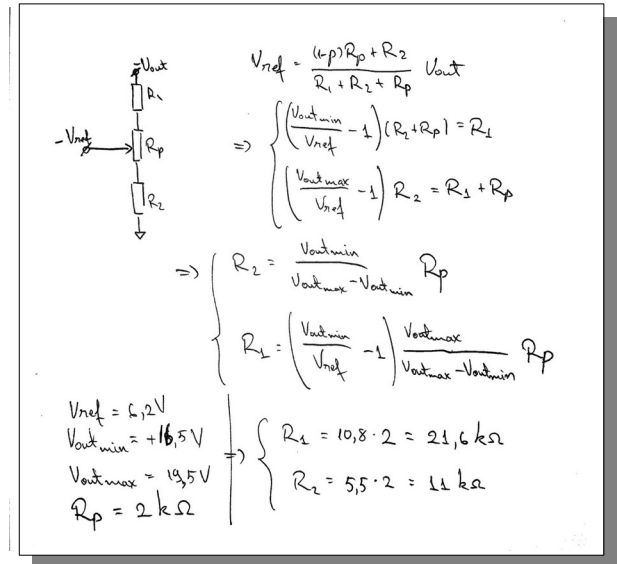 -Vout
R₁
-Vref
Rp
R₂
Vref = ((1-p)Rp + R₂)/(R₁ + R₂ + Rp) Vout
=> { (Voutmin/Vref - 1)(R₂+Rp) = R₁
(Voutmax/Vref - 1) R₂ = R₁ + Rp
=> { R₂ = Voutmin/(Voutmax - Voutmin) Rp
R₁ = (Voutmin/Vref - 1) Voutmax/(Voutmax - Voutmin) Rp
Vref = 6,2V
Voutmin = +16,5V
Voutmax = 19,5V
Rp = 2 kΩ
=> { R₁ = 10,8 · 2 = 21,6 kΩ
R₂ = 5,5 · 2 = 11 kΩ